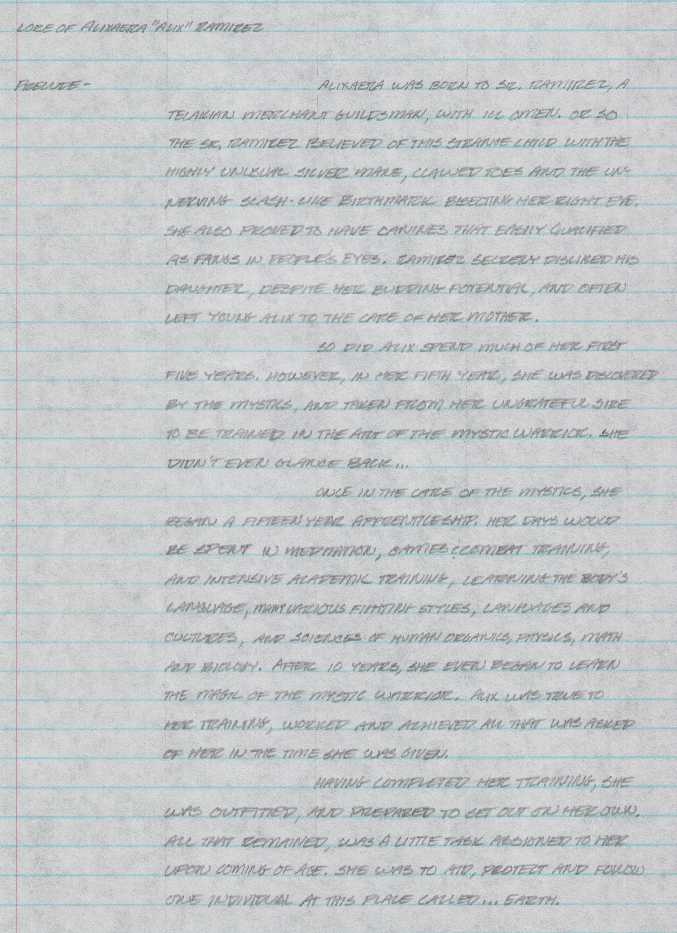 LORE OF ALIXAERA "ALIX" RAMIREZ
PRELUDE - ALIXAERA WAS BORN TO SR. RAMIREZ, A
MERCHANT GUILDSMAN, WITH ILL OMEN. OR SO
THE SR. RAMIREZ BELIEVED OF THIS STRANGE CHILD WITH THE
HIGHLY UNUSUAL SILVER MANE, CLAWED TOES AND THE UN-
NERVING SLASH-LIKE BIRTHMARK BISECTING HER RIGHT EYE.
SHE ALSO PROVED TO HAVE CANINES THAT EASILY QUALIFIED
AS FANGS IN PEOPLE'S EYES. RAMIREZ SECRETLY DISLIKED HIS
DAUGHTER, DESPITE HER BUDDING POTENTIAL, AND OFTEN
LEFT YOUNG ALIX TO THE CARE OF HER MOTHER.
SO DID ALIX SPEND MUCH OF HER FIRST
FIVE YEARS. HOWEVER, IN HER FIFTH YEAR, SHE WAS DISCOVERED
BY THE MYSTICS, AND TAKEN FROM HER UNGRATEFUL SIRE
TO BE TRAINED IN THE ART OF THE MYSTIC WARRIOR. SHE
DIDN'T EVEN GLANCE BACK...
ONCE IN THE CARE OF THE MYSTICS, SHE
BEGAN A FIFTEEN YEAR APPRENTICESHIP. HER DAYS WOULD
BE SPENT IN MEDITATION, GAMES & COMBAT TRAINING,
AND INTENSIVE ACADEMIC TRAINING, LEARNING THE BODY'S
LANGUAGE, VARIOUS FIGHTING STYLES, LANGUAGES AND
CULTURES, AND SCIENCES OF HUMAN ORGANICS, PHYSICS, MATH
AND BIOLOGY. AFTER 10 YEARS, SHE EVEN BEGAN TO LEARN
THE MAGIC OF THE MYSTIC WARRIOR. ALIX WAS TRUE TO
HER TRAINING, WORKED AND ACHIEVED ALL THAT WAS ASKED
OF HER IN THE TIME SHE WAS GIVEN.
HAVING COMPLETED HER TRAINING, SHE
WAS OUTFITTED, AND PREPARED TO SET OUT ON HER OWN.
ALL THAT REMAINED, WAS A LITTLE TASK ASSIGNED TO HER
UPON COMING OF AGE. SHE WAS TO AID, PROTECT AND FOLLOW
ONE INDIVIDUAL AT THIS PLACE CALLED... EARTH.